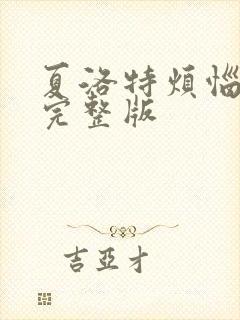 夏洛特煩惱
完整版
吉亞才